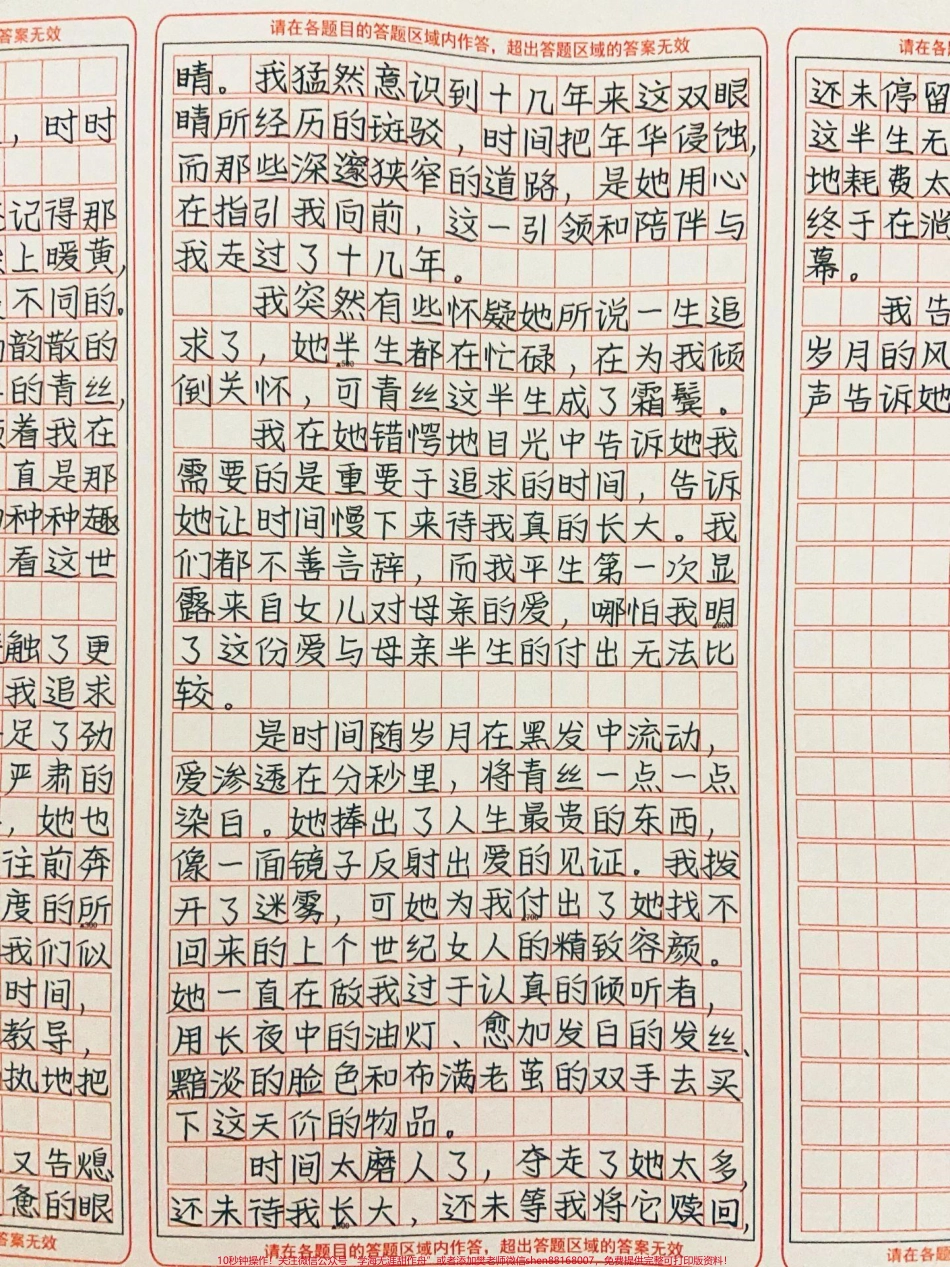 答案无效
，时时
记得那
上暖黄，
不同的。
韵散的
的青丝，
着我在
直是那
种种趣
看这世
触了更
我追求
足了劲
严肃的
，她也
往前奔
度的所
我们似
时间，
教导，
执地把
又告熄
惫的眼
答案无效
请在各题目的答题区域内作答，超出答题区域的答案无效
睛。我猛然意识到十几年来这双眼
睛所经历的斑驳，时间把年华侵蚀，
而那些深邃狭窄的道路，是她用心
在指引我向前，这一引领和陪伴与
我走过了十几年。
我突然有些怀疑她所说一生追
求了，她半生都在忙碌，在为我倾
倒关怀，可青丝这半生成了霜鬓。
我在她错愕地目光中告诉她我
需要的是重要于追求的时间，告诉
她让时间慢下来待我真的长大。我
们都不善言辞，而我平生第一次显
露来自女儿对母亲的爱，哪怕我明
了这份爱与母亲半生的付出无法比
较。
是时间随岁月在黑发中流动，
爱渗透在分秒里，将青丝一点一点
染白。她捧出了人生最贵的东西，
像一面镜子反射出爱的见证。我拨
开了迷雾，可她为我付出了她找不
回来的上个世纪女人的精致容颜。
她一直在做我过于认真的倾听者，
用长夜中的油灯、愈加发白的发丝、
黯淡的脸色和布满老茧的双手去买
下这天价的物品。
时间太磨人了，夺走了她太多，
还未待我长大，还未等我将它赎回，
请在各题目的答题区域内作答，超出答题区域的答案无效
请在各
还未停留
这半生无
地耗费太
终于在淌
幕。
我告
岁月的风
声告诉她
请在各
10秒钟操作！"关注微信公众号 "学海无涯甜作舟" 或者添加樊老师微信shen88168007，免费提供完整可打印版资料！